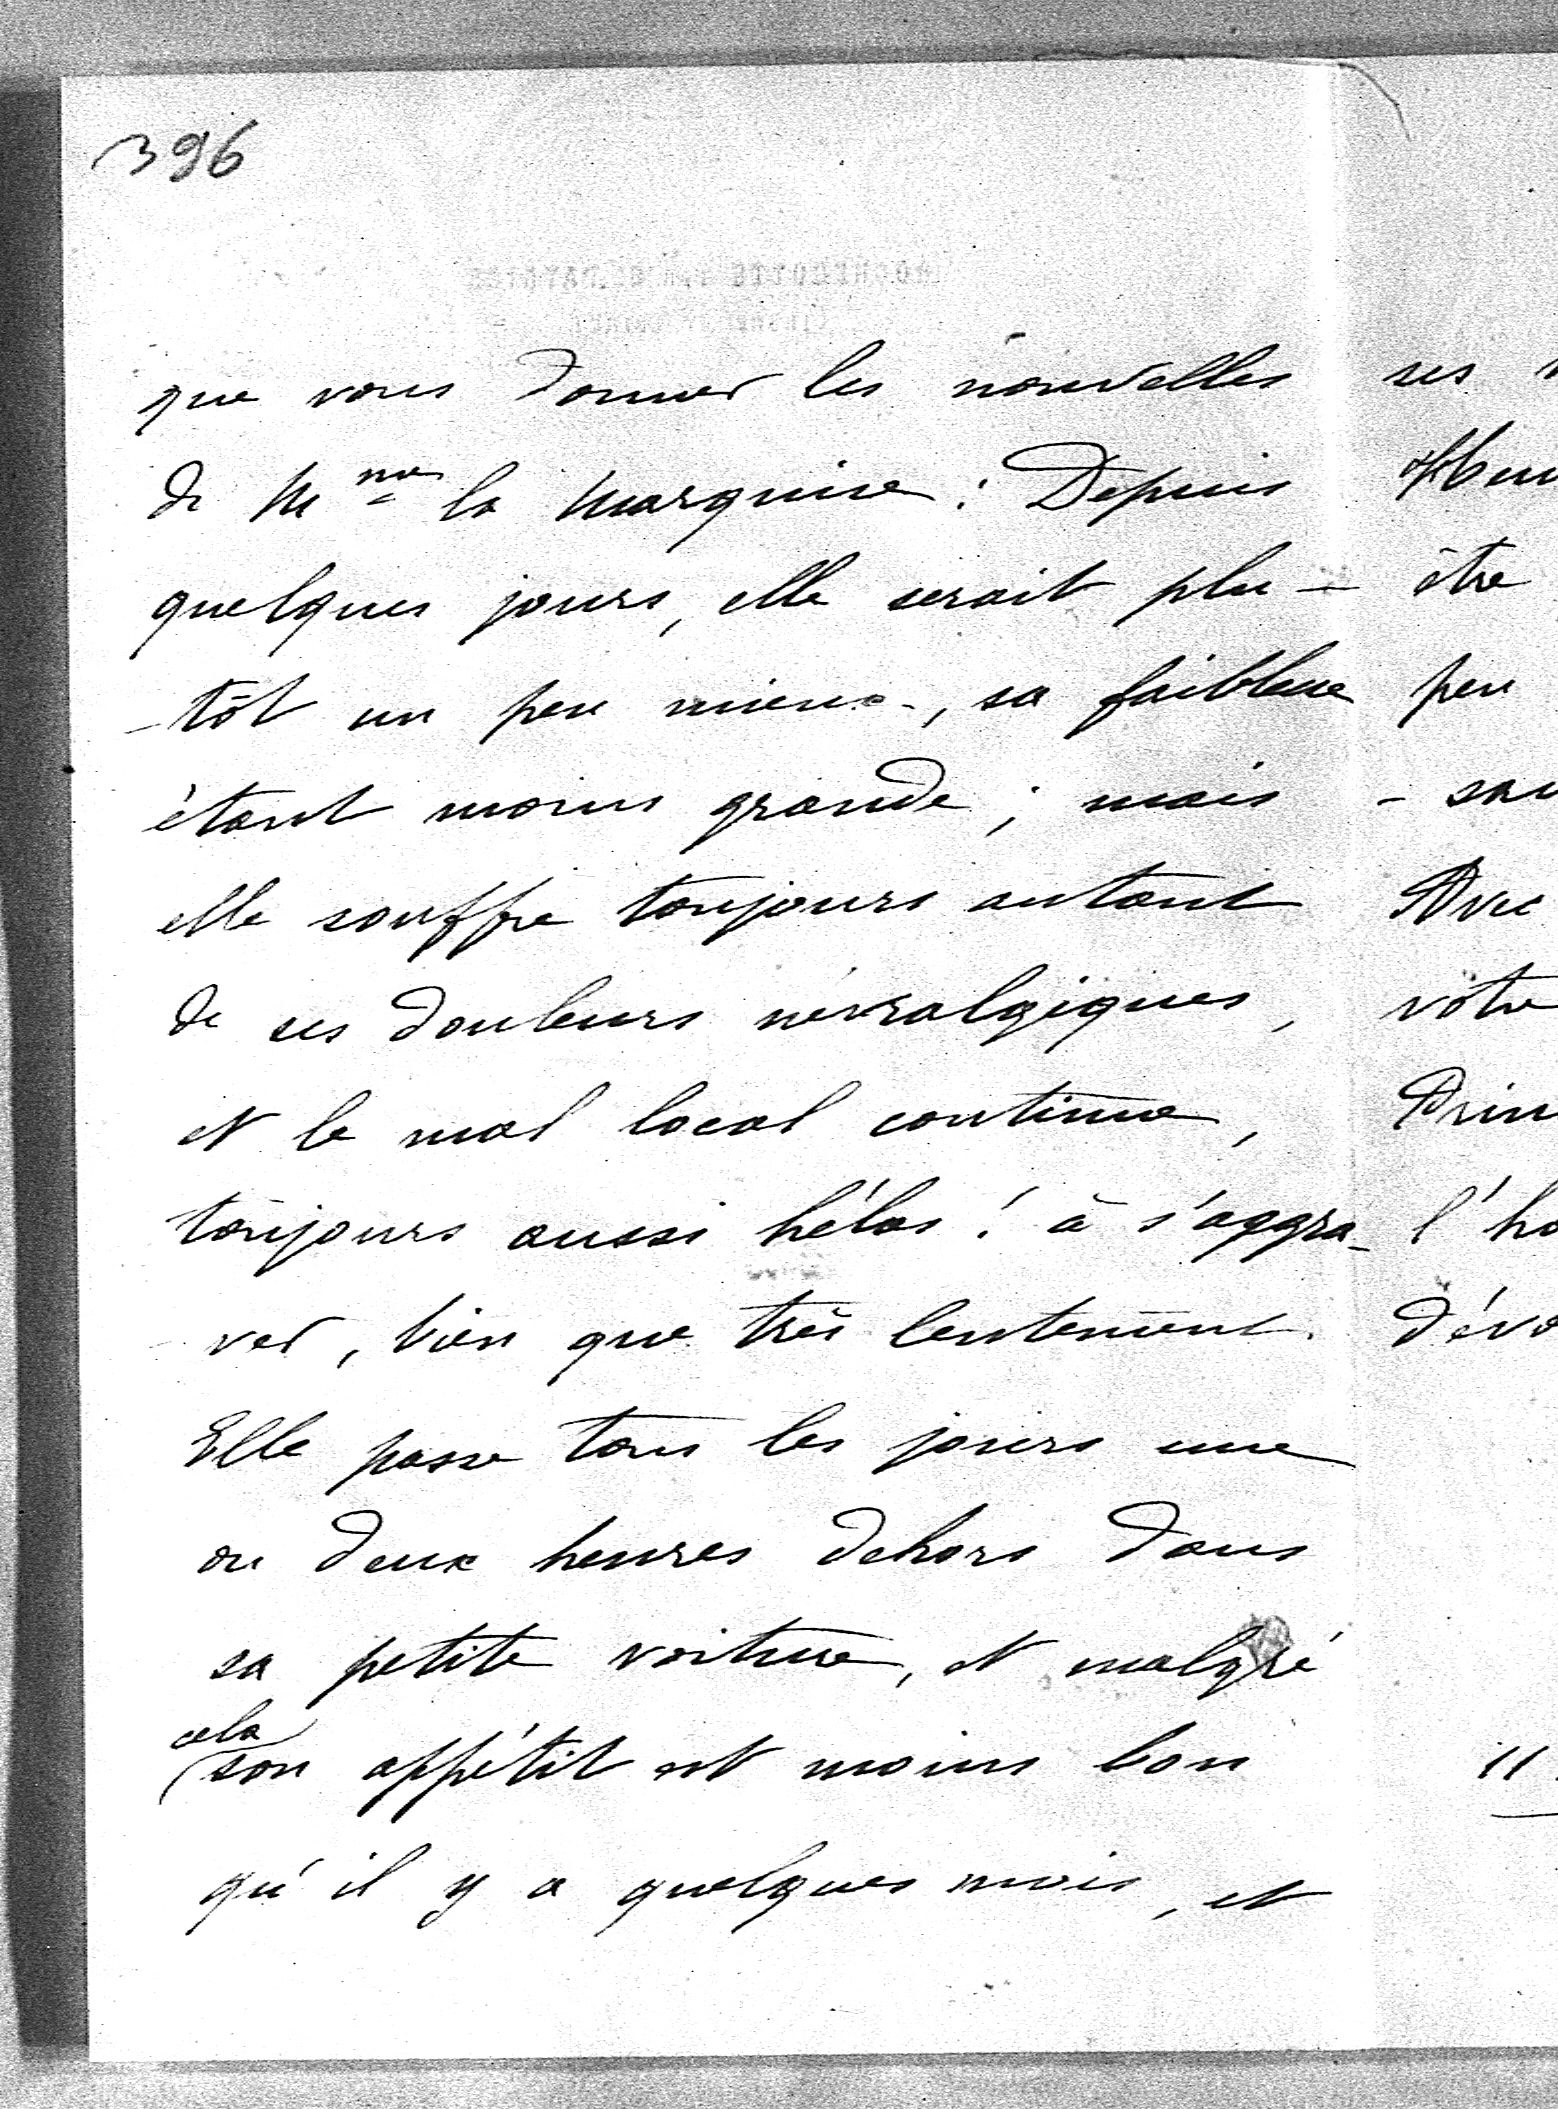 396
que vous donner les nouvelles
de Mme la Marquise : Depuis
quelques jours, elle serait plu-
-tôt un peu mieux, sa faiblesse
étant moins grande ; mais
elle souffre toujours autant
de ses douleurs névralgiques,
et le mal local continue,
toujours aussi hélas ! à s'aggra-
ver, bien que très lentement.
Elle passe tous les jours une
ou deux heures dehors dans
sa petite voiture, et malgré
cela
son appétit est moins bon
qu'il y a quelques mois, et
ses
être
peu
Avec
votre
11